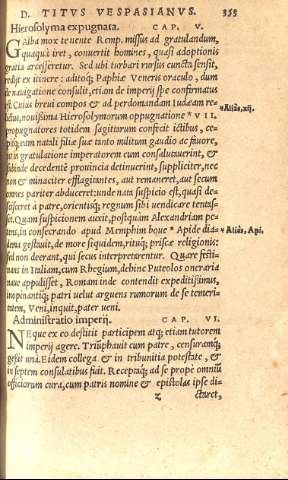 D. TITVS VESPASIANVS. 353
Hierosolyma expugnata. CAP. V.
GAlba mox tenente Remp. missus ad gratulandum,
quaqua iret, conuertit homines, quasi adoptionis
gratia arcesseretur. Sed ubi turbari rursus cuncta sensit,
redijt ex itinere: aditoq; Paphiæ Veneris oraculo, dum
de nauigatione consulit, etiam de imperij spe confirmatus
est. Cuius breui compos & ad perdomandam Iudæam re-
lictus, nouissima Hierosolymorum oppugnatione * VII.
propugnatores totidem sagittarum confecit ictibus, ce-
pitq; eam natali filiæ suæ tanto militum gaudio ac fauore,
ut in gratulatione imperatorem eum consalutauerint, &
subinde decedentē prouincia detinuerint, suppliciter, nec
non & minaciter efflagitantes, aut remaneret, aut secum
omnes pariter abduceret: unde nata suspicio est, quasi de-
sciscere à patre, orientisq; regnum sibi uendicare tentas-
set. Quam suspicionem auxit, postquàm Alexandriam pe-
tens, in consecrando apud Memphim boue * Apide dia-
dema gestauit, de more id quidem, rituq; priscæ religionis:
sed non deerant, qui secus interpretarentur. Quare festi-
nans in Italiam, cum Rhegium, dehinc Puteolos oneraria
naue appulisset, Romam inde contendit expeditissimus,
inopinantiq; patri uelut arguens rumorum de se temeri-
tatem, Veni, inquit, pater ueni.
Administratio imperij. CAP. VI.
NEque ex eo destitit participem atq; etiam tutorem
imperij agere. Triūphauit cum patre, censuramq;
gessit unà. Eidem collega & in tribunitia potestate, &
in septem consulatibus fuit. Receptaq; ad se propè omniū
officiorum cura, cum patris nomine & epistolas ipse di-
z ctaret,
Aliâs, xij.
Aliâs, Api.